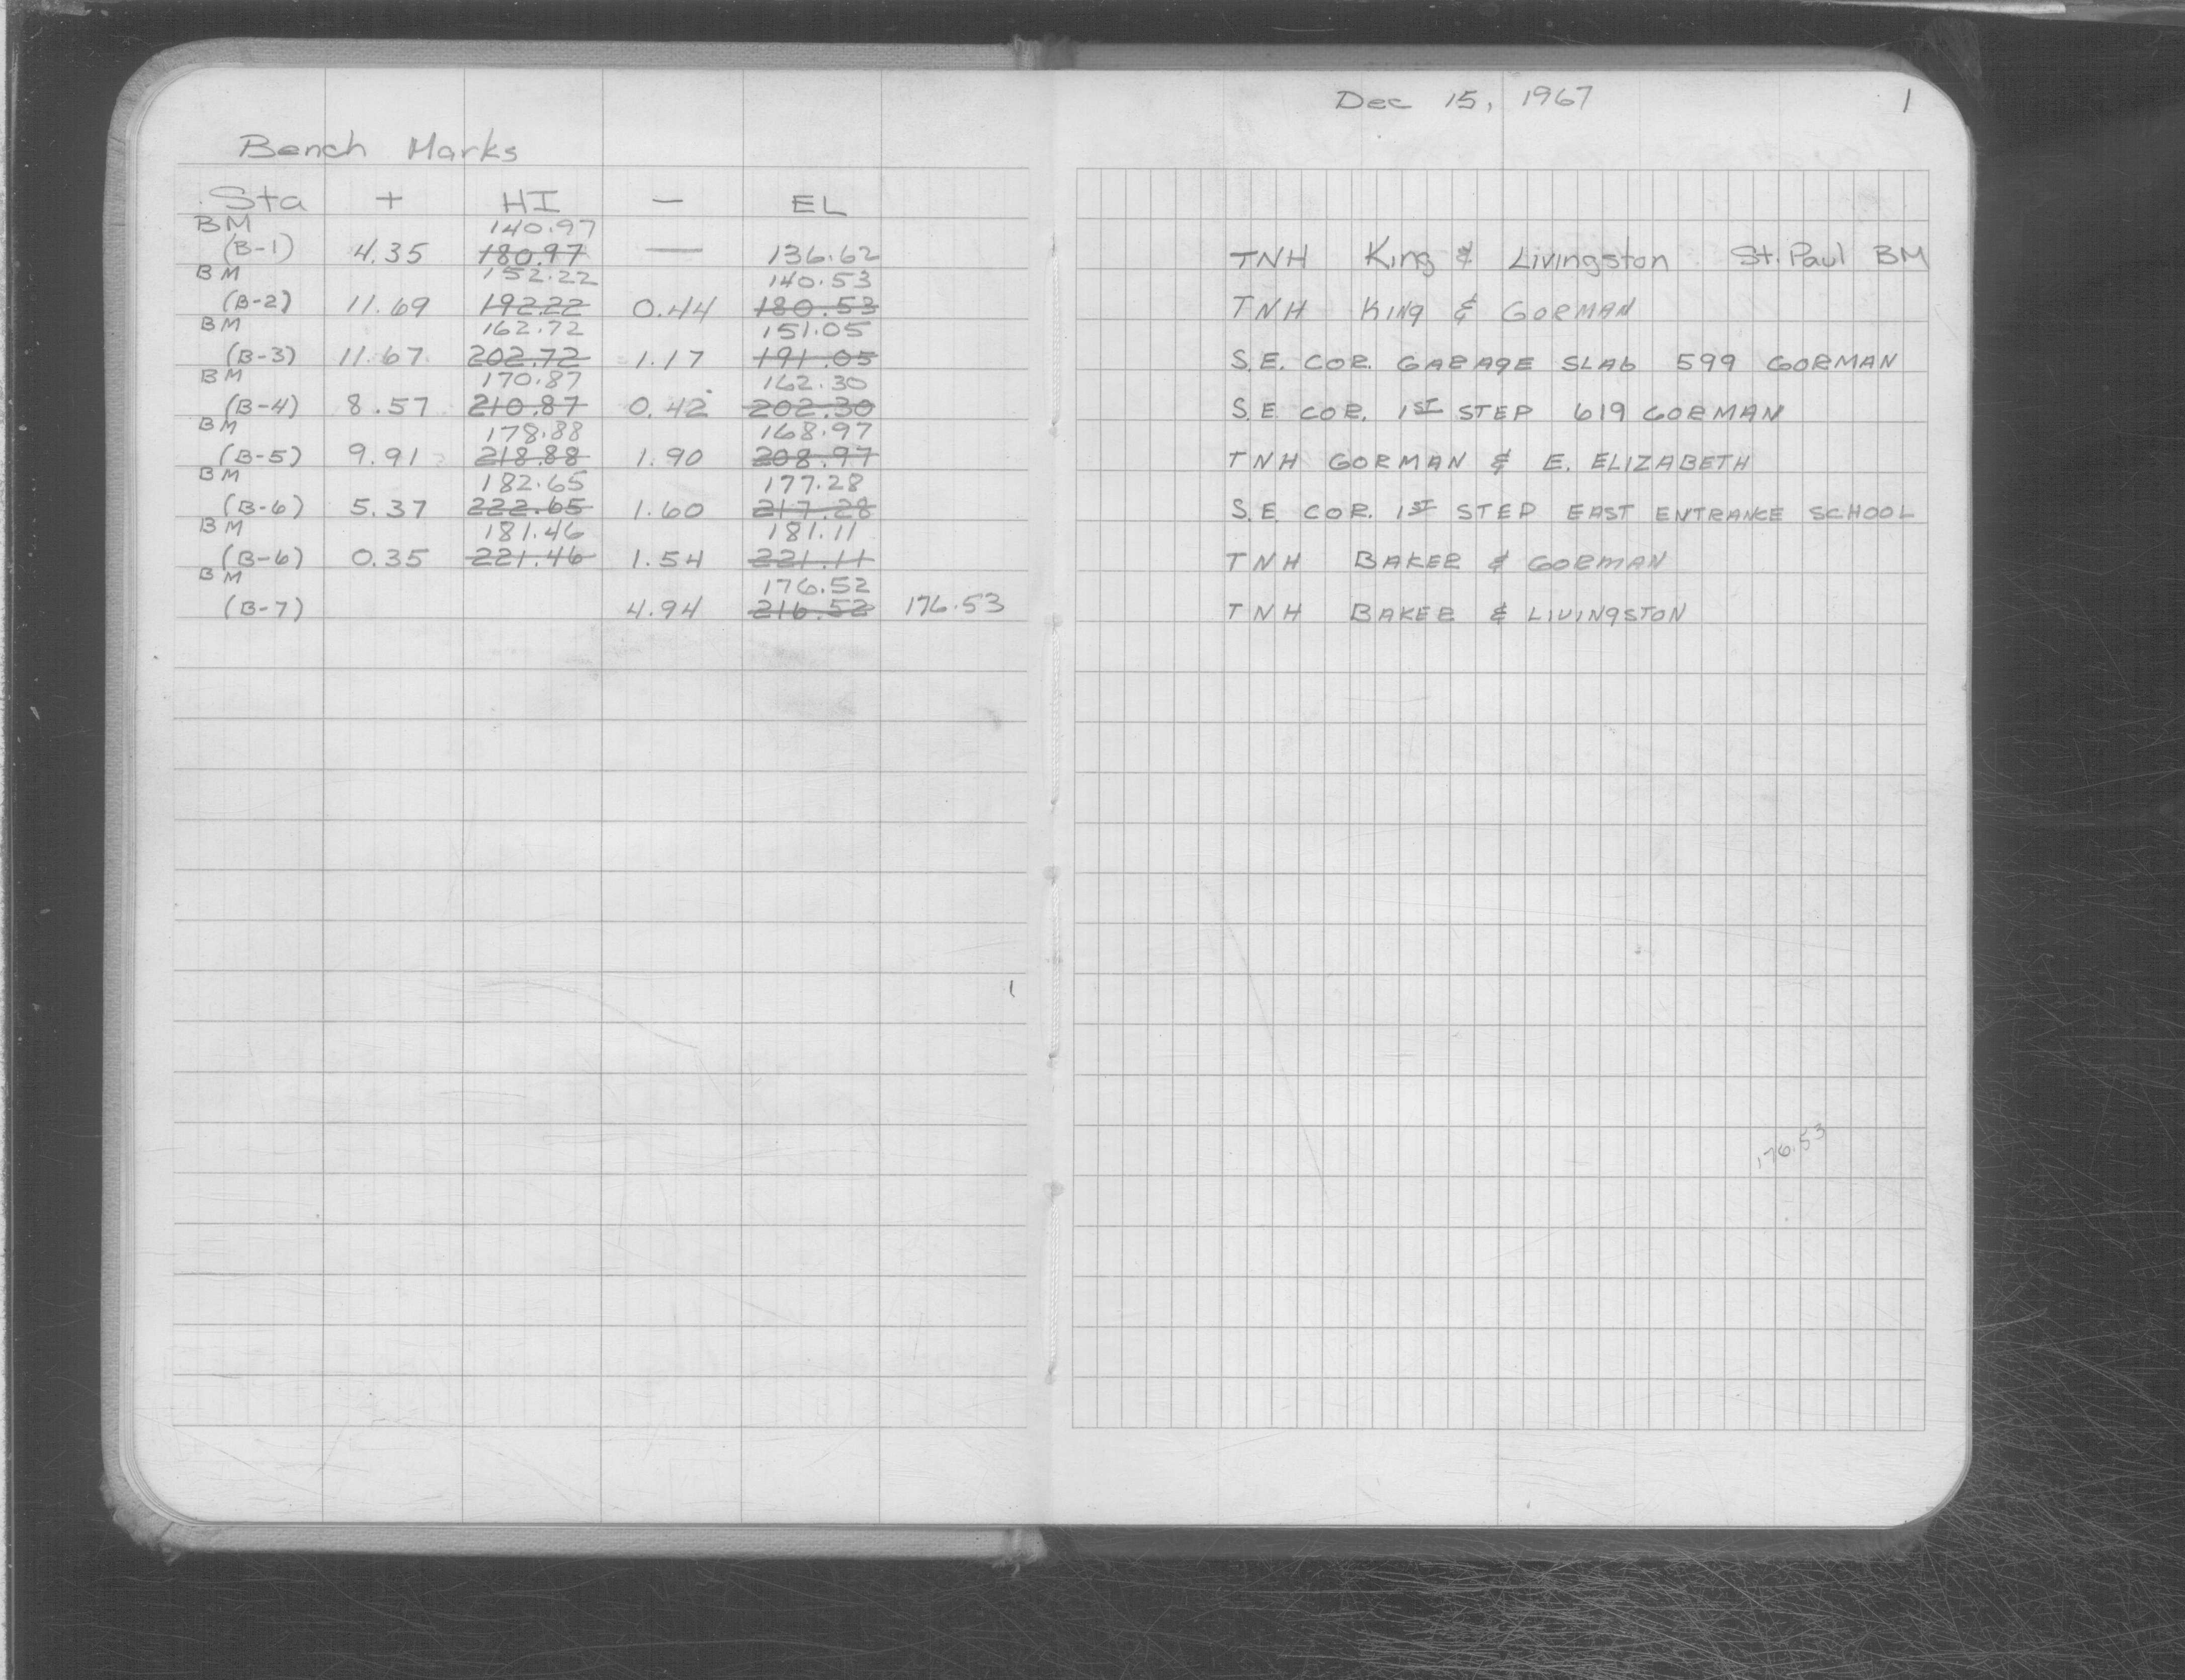 Dec 15, 1967 1
Bench Marks
Sta + HI — EL
BM 140.97
(B-1) 4.35 180.97 — 136.62 TNH King & Livingston St. Paul BM
BM 152.22 140.53
(B-2) 11.69 192.22 0.44 180.53 TNH KING & GORMAN
BM 162.72 151.05
(B-3) 11.67 202.72 1.17 191.05 S.E. COR. GARAGE SLAb 599 GORMAN
BM 170.87 162.30
(B-4) 8.57 210.87 0.42 202.30 S.E. COR. 1ST STEP 619 GORMAN
BM 178.88 168.97
(B-5) 9.91 218.88 1.90 208.97 TNH GORMAN & E. ELIZABETH
BM 182.65 177.28
(B-6) 5.37 222.65 1.60 217.28 S.E. COR. 1ST STEP EAST ENTRANCE SCHOOL
BM 181.46 181.11
(B-6) 0.35 221.46 1.54 221.11 TNH BAKER & GORMAN
BM 176.52
(B-7) 4.94 216.52 176.53 TNH BAKER & LIVINGSTON
176.53